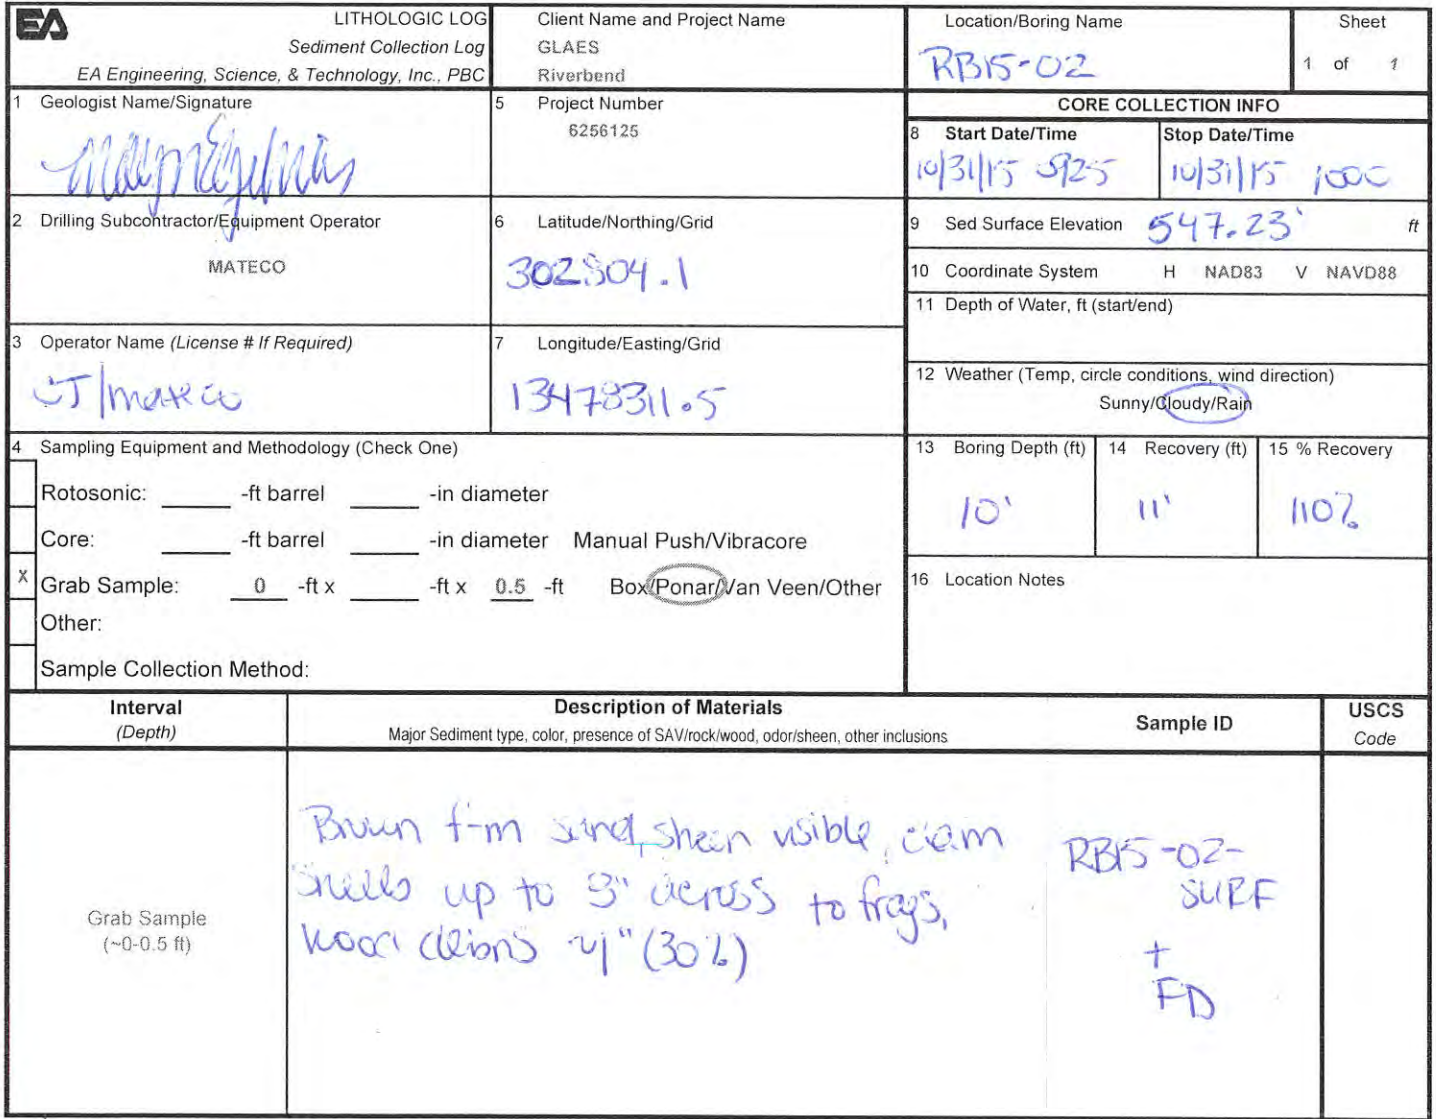 EA
LITHOLOGIC LOG
Sediment Collection Log
EA Engineering, Science, & Technology, Inc., PBC
Client Name and Project Name
GLAES
Riverbend
Location/Boring Name
RB15-02
Sheet
1 of 1
1 Geologist Name/Signature
5 Project Number
6256125
CORE COLLECTION INFO
8 Start Date/Time
10/31/15 0925
Stop Date/Time
10/31/15 1000
2 Drilling Subcontractor/Equipment Operator
MATECO
6 Latitude/Northing/Grid
302804.1
9 Sed Surface Elevation 547.23' ft
10 Coordinate System H NAD83 V NAVD88
11 Depth of Water, ft (start/end)
3 Operator Name (License # If Required)
CJ/mateco
7 Longitude/Easting/Grid
13478311.5
12 Weather (Temp, circle conditions, wind direction)
Sunny/Cloudy/Rain
4 Sampling Equipment and Methodology (Check One)
Rotosonic: -ft barrel -in diameter
Core: -ft barrel -in diameter Manual Push/Vibracore
X Grab Sample: 0 -ft x -ft x 0.5 -ft Box/Ponar/Van Veen/Other
Other:
Sample Collection Method:
13 Boring Depth (ft)
10'
14 Recovery (ft)
11'
15 % Recovery
110%
16 Location Notes
Interval
(Depth)
Description of Materials
Major Sediment type, color, presence of SAV/rock/wood, odor/sheen, other inclusions
Sample ID
USCS
Code
Grab Sample
(~0-0.5 ft)
Brown f-m sand, sheen visible, clam
shells up to 3" across to frags,
wood debris ~1" (30%)
RB15-02-
SURF
+
FD